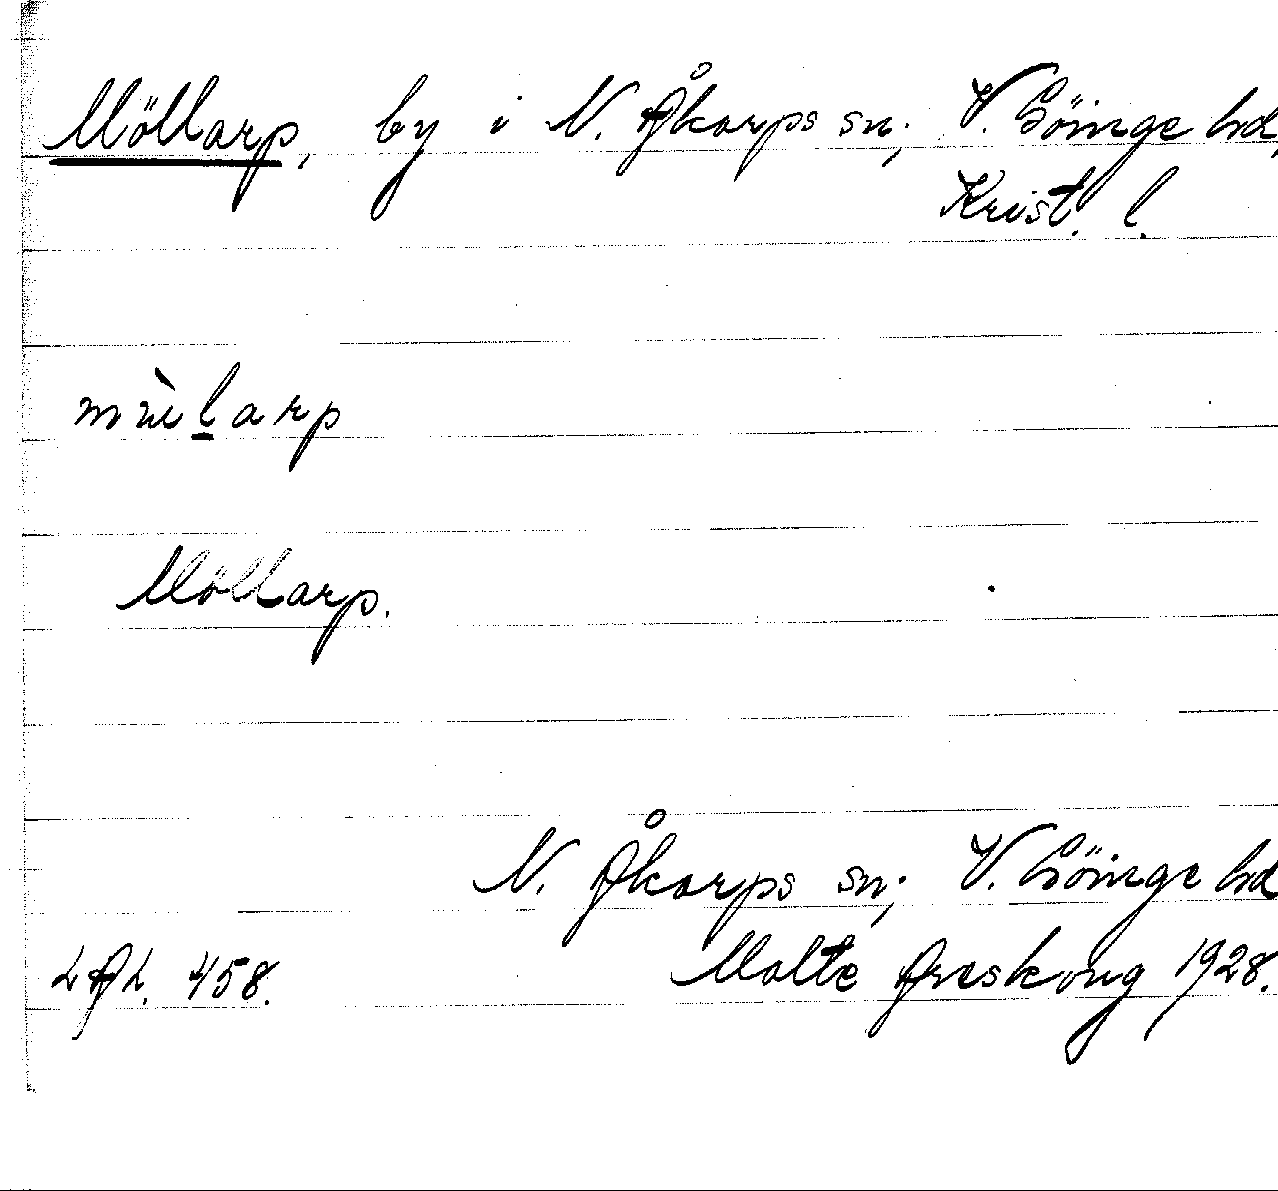 Möllarp, by i N. Åkarps sn; V. Göinge hd,
Krist. l.
Möllarp.
N. Åkarps sn; V. Göinge hd
LAL. 458. Malte Areskoug 1928.